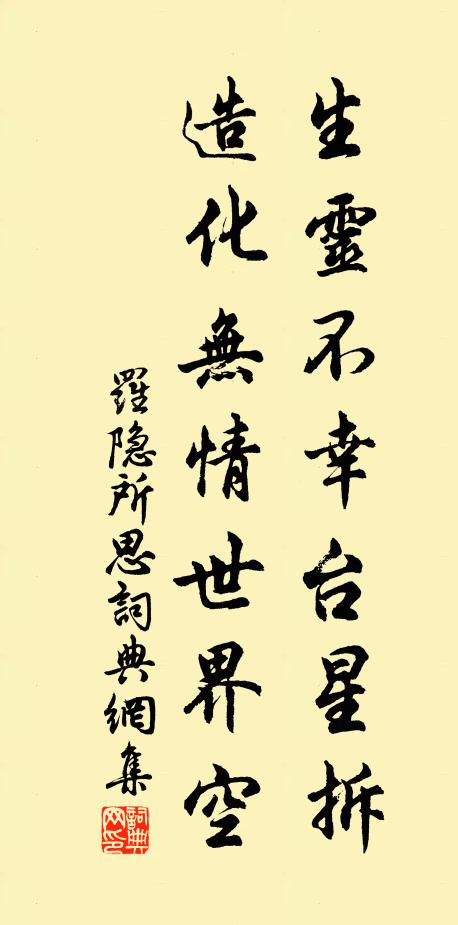 生靈不幸台星拆
造化無情世界空
羅隐所思詞典網集
詞典网印